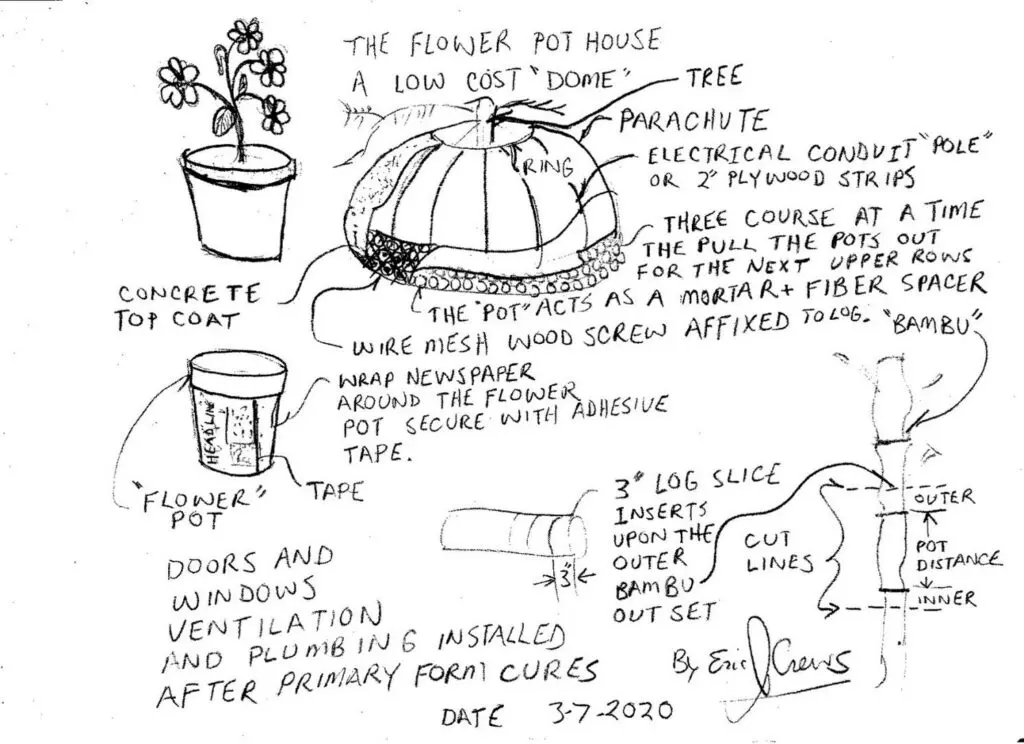 THE FLOWER POT HOUSE
A LOW COST "DOME"
TREE
PARACHUTE
RING
ELECTRICAL CONDUIT "POLE"
OR 2" PLYWOOD STRIPS
THREE COURSE AT A TIME
THE PULL THE POTS OUT
FOR THE NEXT UPPER ROWS
THE "POT" ACTS AS A MORTAR + FIBER SPACER
CONCRETE
TOP COAT
WIRE MESH WOOD SCREW AFFIXED TO LOG. "BAMBU"
WRAP NEWSPAPER
AROUND THE FLOWER
POT SECURE WITH ADHESIVE
TAPE.
HEADLINE
TAPE
"FLOWER"
POT
3" LOG SLICE
INSERTS
UPON THE
OUTER
BAMBU
OUT SET
3"
CUT
LINES
OUTER
POT
DISTANCE
INNER
DOORS AND
WINDOWS
VENTILATION
AND PLUMBING INSTALLED
AFTER PRIMARY FORM CURES
By Eric J Crews
DATE 3-7-2020